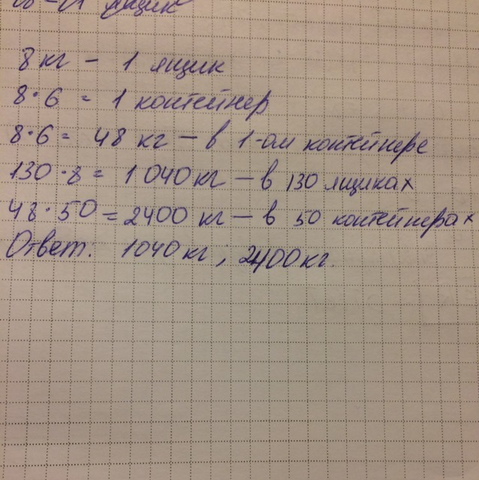 ящик
8 кг - 1 ящик
8·6 = 1 контейнер
8·6 = 48 кг - в 1-ом контейнере
130·8 = 1 040 кг - в 130 ящиках
48·50 = 2400 кг - в 50 контейнерах
Ответ. 1040 кг ; 2400 кг.